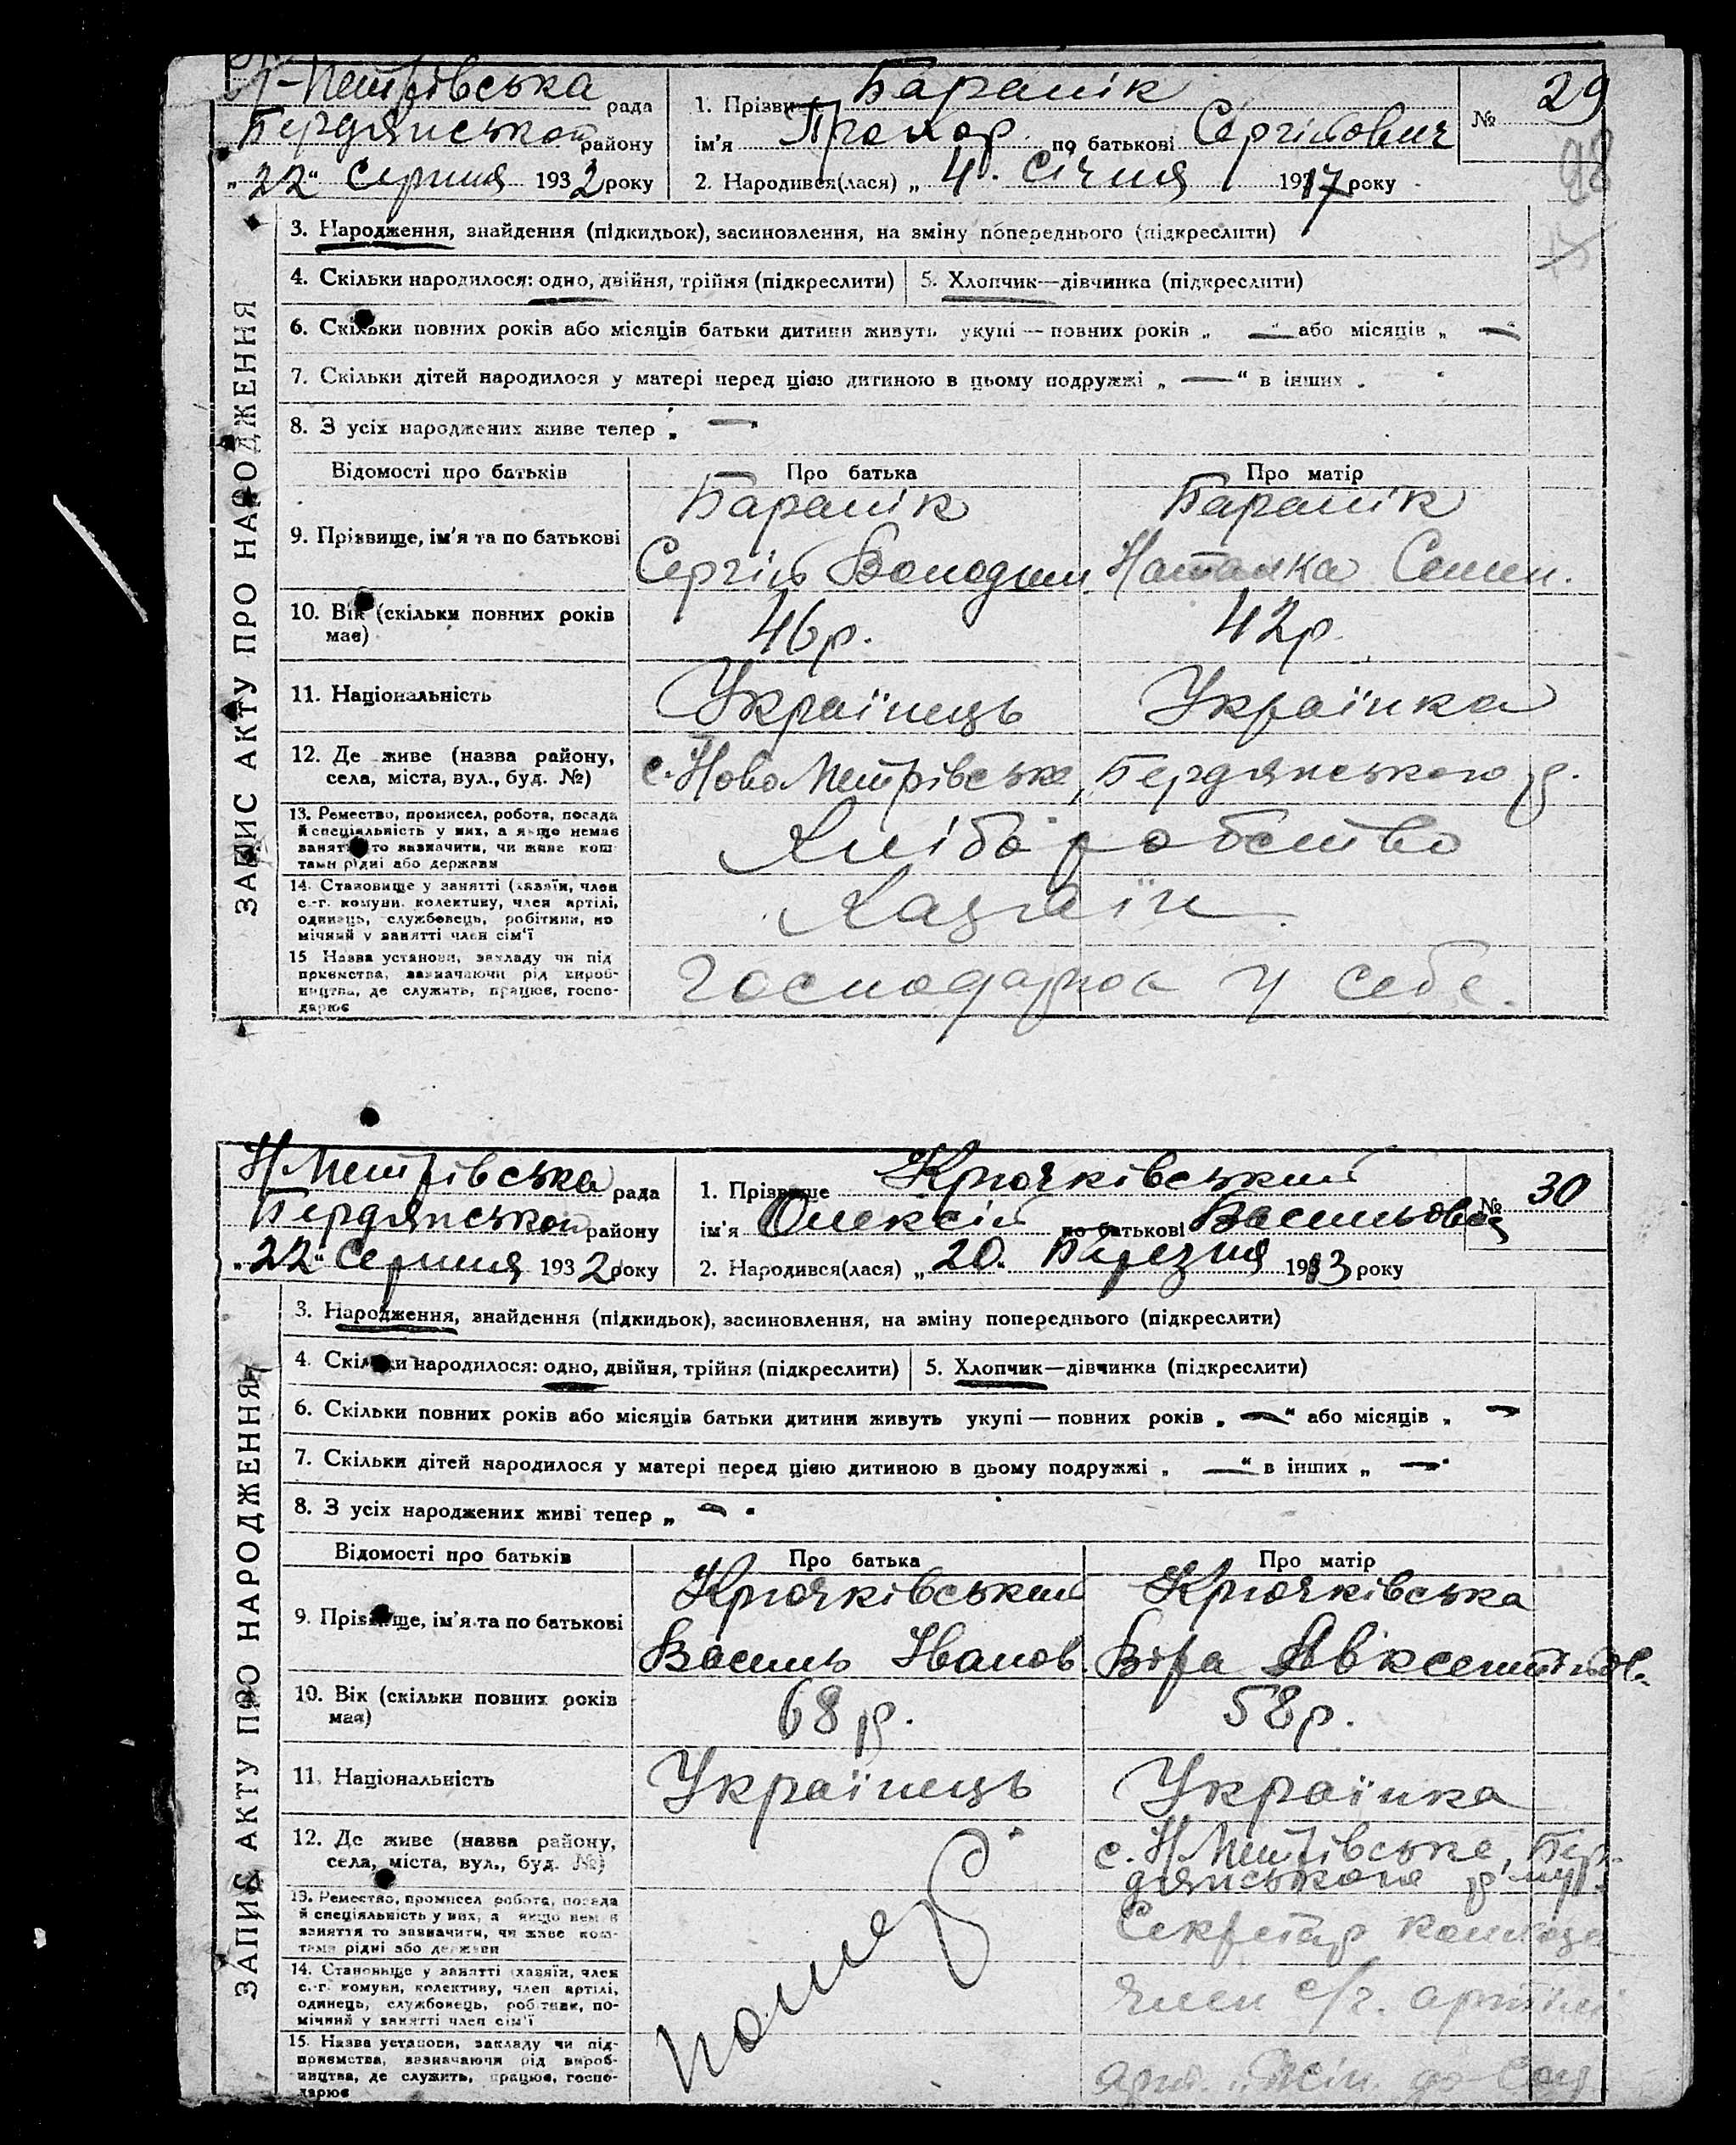 Н-Петрівська рада
Бердянського району
„22" Серпня 1932 року
1. Прізвище Баранік
ім'я Прохор по батькові Сергійович
2. Народився(лася) „4. Січня 1917 року
№ 29
98
ЗАПИС АКТУ ПРО НАРОДЖЕННЯ
3. Народження, знайдення (підкидьок), засиновлення, на зміну попереднього (підкреслити)
4. Скільки народилося: одно, двійня, трійня (підкреслити)
5. Хлопчик—дівчинка (підкреслити)
6. Скільки повних років або місяців батьки дитини живуть укупі — повних років „ — " або місяців „ —
7. Скільки дітей народилося у матері перед цією дитиною в цьому подружжі „ — " в інших „
8. З усіх народжених живе тепер „ —
Відомості про батьків Про батька Про матір
9. Прізвище, ім'я та по батькові
Баранік Баранік
Сергій Володим Наталка Семен.
10. Вік (скільки повних років
має)
46р. 42р.
11. Національність Українець Українка
12. Де живе (назва району,
села, міста, вул., буд. №)
с. Ново Петрівське, Бердянського р.
13. Ремество, промисел, робота, посада
й спеціяльність у них, а якщо немає
заняття то зазначити, чи живе кош
тами рідні або держави
Хліборобство
14. Становище у занятті (хазяїн, член
с.-г. комуни, колективу, член артілі,
одинець, службовець, робітник, по
мічний у занятті член сім'ї
Хазяїн
15 Назва установи, закладу чи під
приємства, зазначаючи рід вироб-
ництва, де служить, працює, госпо-
дарює
Господарює у себе.
Н Петрівська рада
Бердянського району
„22" Серпня 1932 року
1. Прізвище Крючківський
ім'я Олексій по батькові Васильович
2. Народився(лася) „20. Березня 1913 року
№ 30
ЗАПИС АКТУ ПРО НАРОДЖЕННЯ
3. Народження, знайдення (підкидьок), засиновлення, на зміну попереднього (підкреслити)
4. Скільки народилося: одно, двійня, трійня (підкреслити)
5. Хлопчик—дівчинка (підкреслити)
6. Скільки повних років або місяців батьки дитини живуть укупі — повних років „ — " або місяців „ —
7. Скільки дітей народилося у матері перед цією дитиною в цьому подружжі „ — " в інших „ — "
8. З усіх народжених живі тепер „ — "
Відомості про батьків Про батька Про матір
9. Прізвище, ім'я та по батькові
Крючківський Крючківська
Василь Іванов. Віра Авксентіївн.
10. Вік (скільки повних років
має)
68 р. 58р.
11. Національність Українець Українка
12. Де живе (назва району,
села, міста, вул., буд. №)
помер
с. Н Петрівське, Бер-
дянського р-ну
13. Ремество, промисел робота, посада
й спеціяльність у них, а якщо немає
заняття то зазначити, чи живе кош-
тами рідні або держави
Секретар
14. Становище у занятті (хазяїн, член
с.-г. комуни, колективу, член артілі,
одинець, службовець, робітник, по-
мічний у занятті член сім'ї
член с/г. артілі
15. Назва установи, закладу чи під-
приємства, зазначаючи рід вироб-
ництва, де служить, працює, госпо-
дарює
Арт.